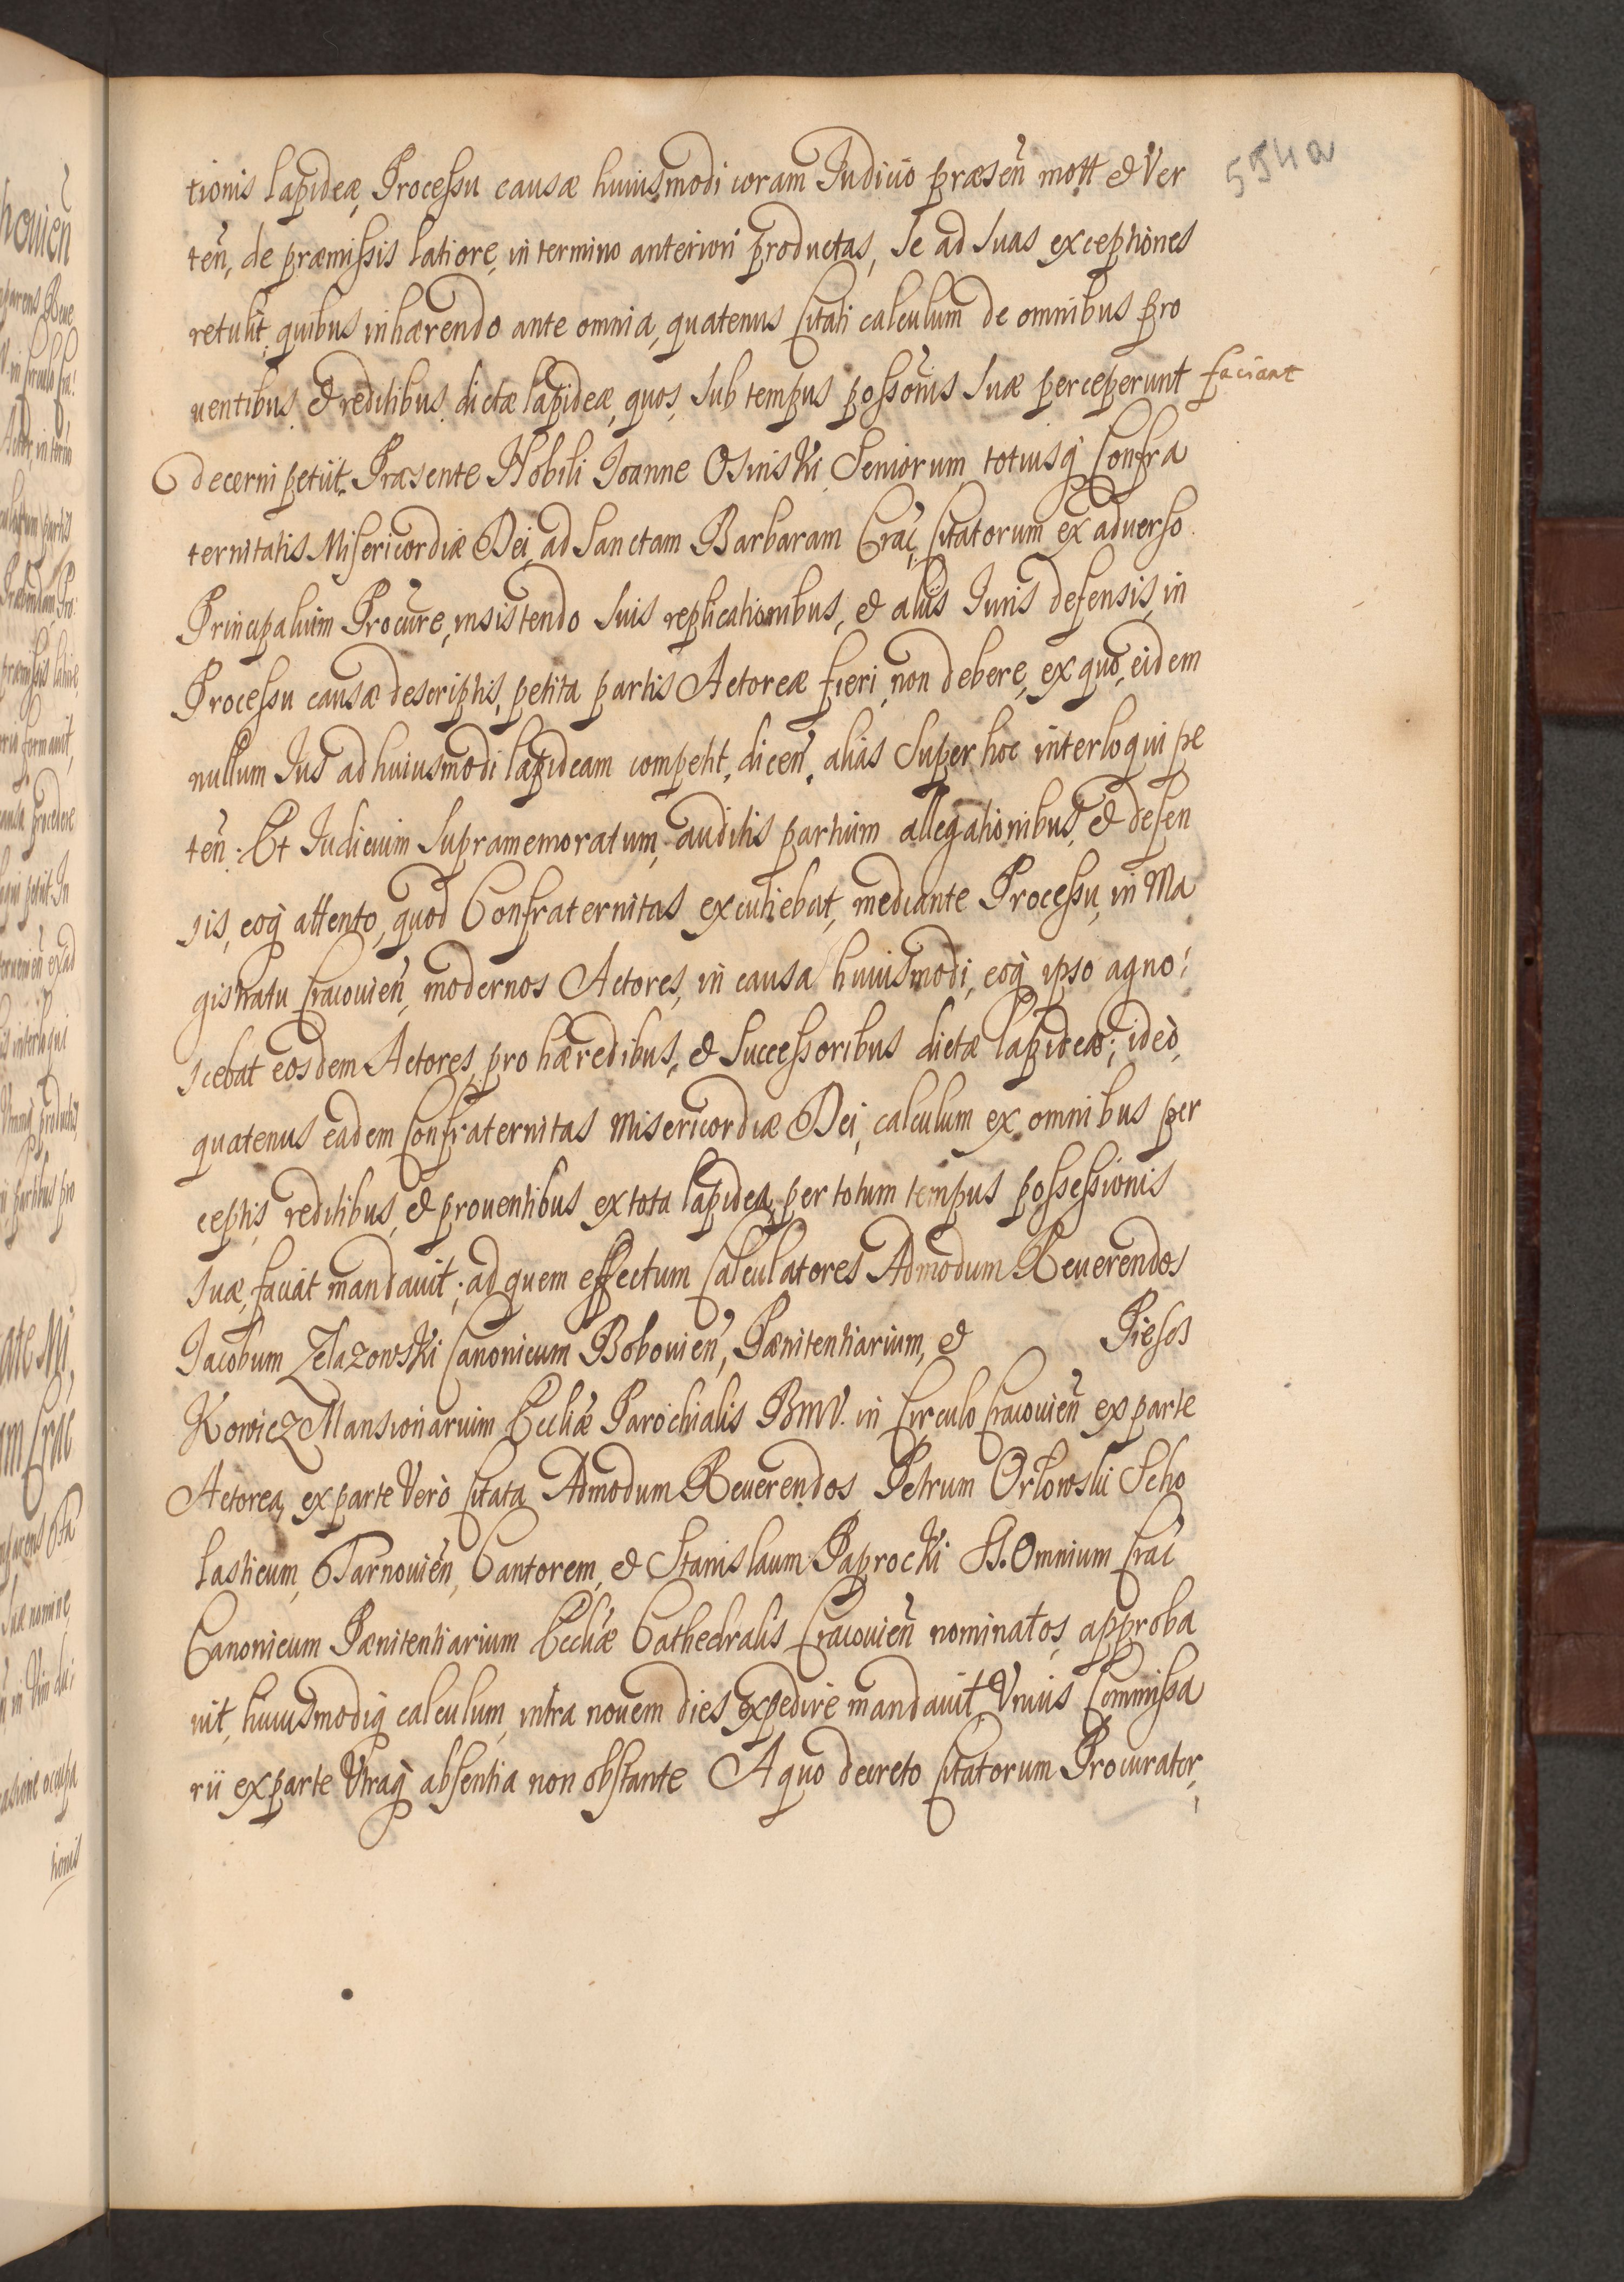 594a
tionis lapideæ, Processu causæ huiusmodi coram Iudicio præsen̄ mott et Ver
ten̄, de præmissis latiore, in termino anteriori productas, se ad suas exceptiones
retulit, quibus inhærendo ante omnia, quatenus Citati calculum de omnibus pro
uentibus et reditibus dictæ lapideæ, quos sub tempus possōnis suæ perceperunt faciant
decerni petiit. Præsente Nobili Ioanne Osinski Seniorum totiusq̀ Confra
ternitatis Misericordiæ Dei, ad Sanctam Barbaram Crac̄, Citatorum ex aduerso
Principalium Procūre, insistendo suis replicationibus, et aliis Iuris defensis, in
Processu causæ descriptis, petita partis Actoreæ fieri, non debere, ex quo, eidem
nullum Ius ad huiusmodi lapideam competit, dicen̄, alias super hoc interloqui pe
ten̄. Et Iudicium supramemoratum, auditis partium allegationibus, et defen
sis, eoq̀ attento, quod Confraternitas excutiebat, mediante Processu, in Ma
gistratu Cracouien̄, modernos Actores, in causa huiusmodi, eoq̀ ipso agno:
scebat eosdem Actores, pro hæredibus, et Successoribus dictæ lapideæ; ideò,
quatenus eadem Confraternitas Misericordiæ Dei, calculum ex omnibus per
ceptis, reditibus, et prouentibus ex tota lapidea, per totum tempus possessionis
suæ, faciat mandauit; ad quem effectum Calculatores Admodum Reuerendos
Iacobum Zelazowski Canonicum Bobouien̄, Pænitentiarium, et Piesos
Kowicz Mansionarium Eccliæ Parochialis BMV. in Circulo Cracouien̄ ex parte
Actorea, ex parte Verò Citata Admodum Reuerendos Petrum Orlowski Scho
lasticum, Tarnouien̄, Cantorem, et Stanislaum Paprocki SS. Omnium Crac̄
Canonicum Pænitentiarium Eccliæ Cathedralis Cracouien̄ nominatos, approba
uit, huiusmodiq̀ calculum, intra nouem dies expedire mandauit, Vnius Commissa
rii ex parte Vtraq̀ absentia non obstante A quo decreto Citatorum Procurator,